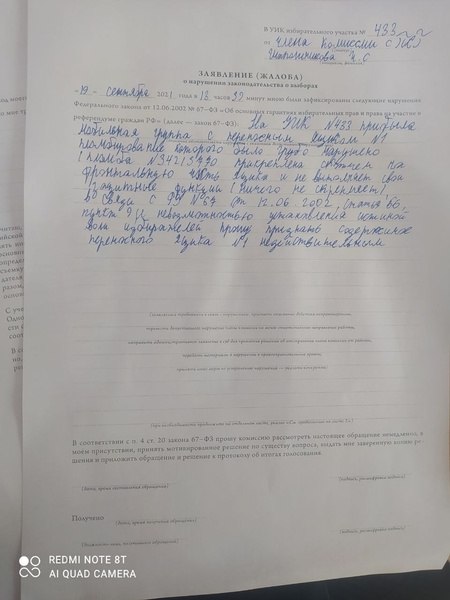 В УИК избирательного участка № 433
от члена комиссии с
ЗАЯВЛЕНИЕ (ЖАЛОБА)
о нарушении законодательства о выборах
«19» сентября 2021 в 18 часов 30 минут мною были зафиксированы следующие нарушения
Федерального закона от 12.06.2002 № 67-ФЗ «Об основных гарантиях избирательных прав и права на участие в
референдуме граждан РФ» (далее — закон 67-ФЗ): На УИК №433 прибыла
мобильная группа с переносным ящиком №1
пломбирование которого было грубо нарушено
(пломба прикреплена скотчем на
фронтальную часть ящика и не выполняет свои
защитные функции (ничего не скрепляет).
В связи с ФЗ №67 от 12.06.2002, статья 66,
пункт 9 невозможностью установления истиной
воли избирателей прошу признать содержимое
переносного ящика №1 недействительным
(при необходимости продолжить на отдельном листе, указав «См. продолжение на листе 2».)
В соответствии с п. 4 ст. 20 закона 67-ФЗ прошу комиссию рассмотреть настоящее обращение немедленно, в
моем присутствии, принять мотивированное решение по существу вопроса, выдать мне заверенную копию ре-
шения и приложить обращение и решение к протоколу об итогах голосования.
(дата, время составления обращения) (подпись, расшифровка подписи)
Получено
(дата, время получения обращения) (подпись, расшифровка подписи)
(должность лица, получившего обращение)
REDMI NOTE 8T
AI QUAD CAMERA